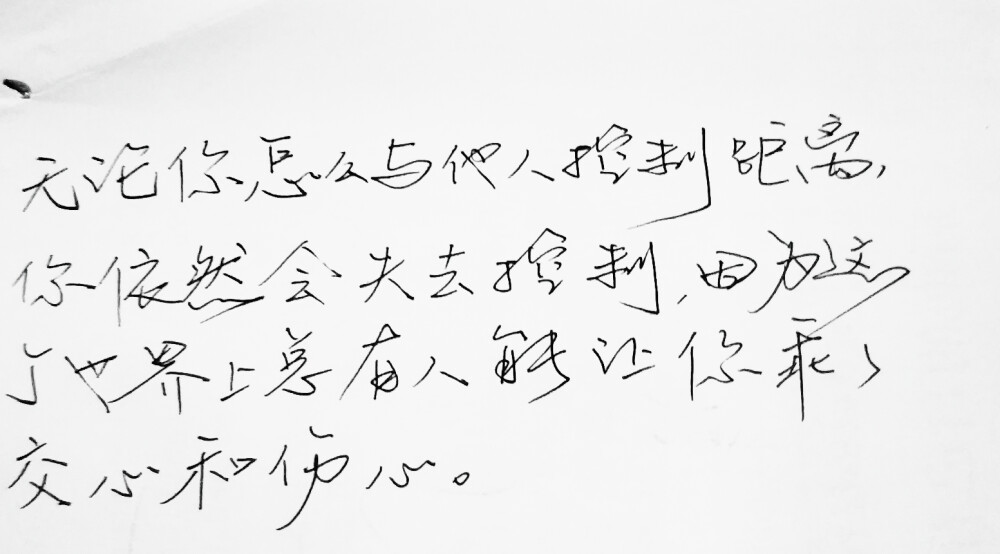 无论你怎么与他人控制距离,
你依然会失去控制,因为这
个世界上总有人能让你乖乖
交心和伤心。